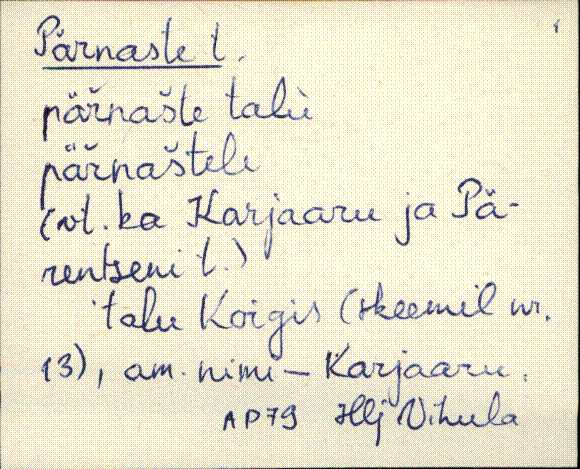 Pärnaste t.
päřnašte talù
päřnaštele
(vt. ka Karjaaru ja Pä-
rentseni t.)
talu Koigis (skeemil nr.
13), am. nimi – Karjaaru.
AP79 Hlj Vihula